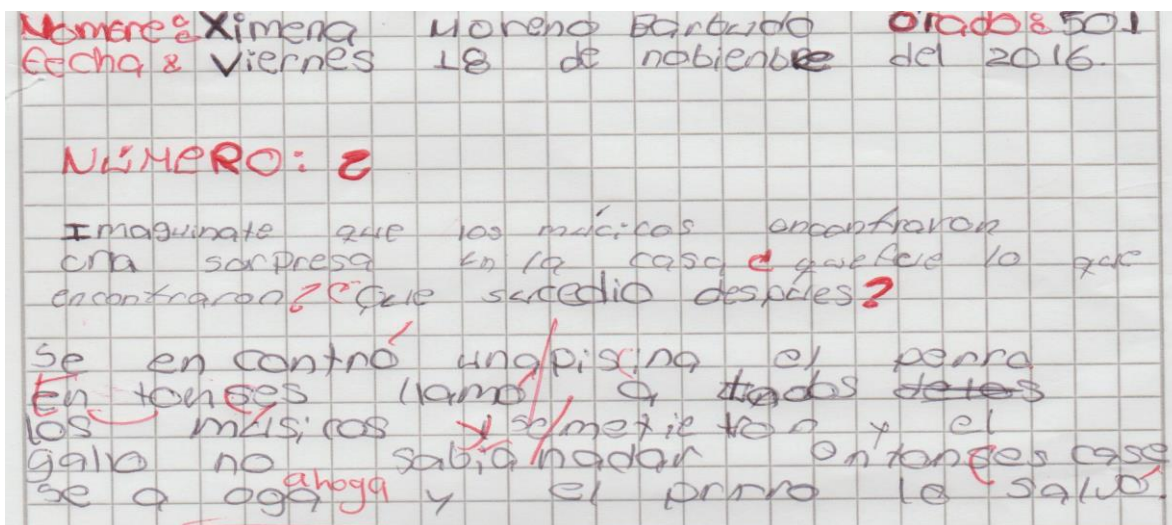 Nomere: Ximena Moreno Barbudo Grado: 501
Fecha: Viernes 18 de nobienbre del 2016.
NÚMERO: 2
Imaguinate que los múcicos encontraron
una sorpresa en la casa ¿ que fue lo que
encontraron? ¿ Que sucedio despúes?
Se en contró una piscina el perro
En tonses llamó a todos
los músicos y se metie ron y el
gallo no sabia nadar entonces case
se a oga ahoga y el prrro lo salvó.